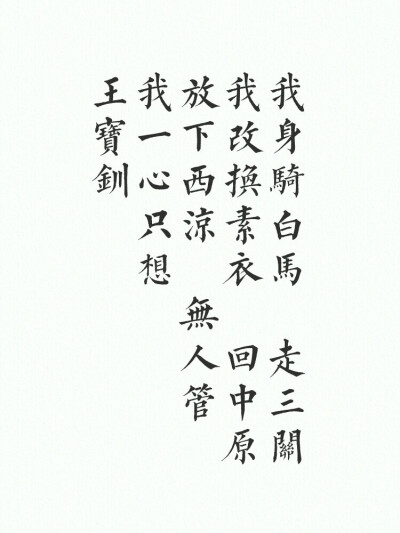 我身騎白馬 走三關
我改換素衣 回中原
放下西涼 無人管
我一心只想
王寶釧